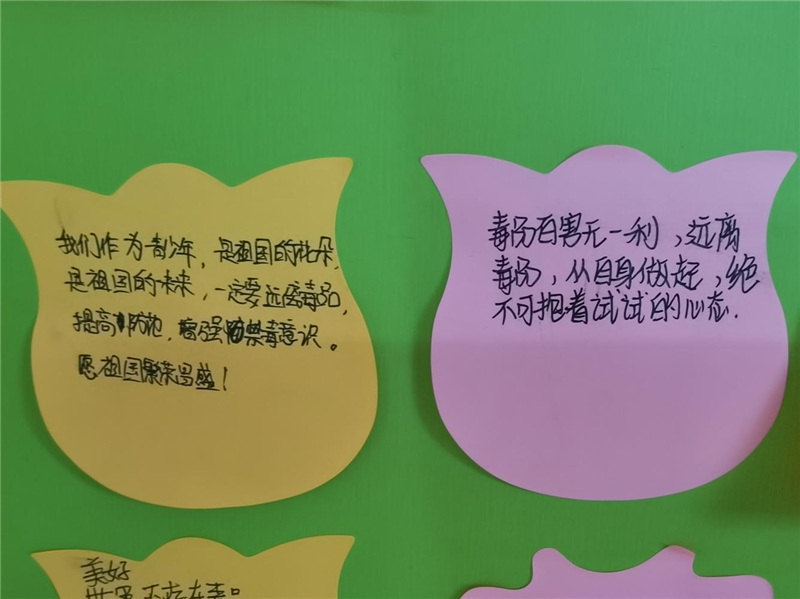 我们作为青少年，是祖国的花朵，
是祖国的未来，一定要远离毒品，
提高防范，增强禁毒意识。
愿祖国繁荣昌盛！
毒品百害无一利，远离
毒品，从自身做起，绝
不可抱着试试的心态.
美好